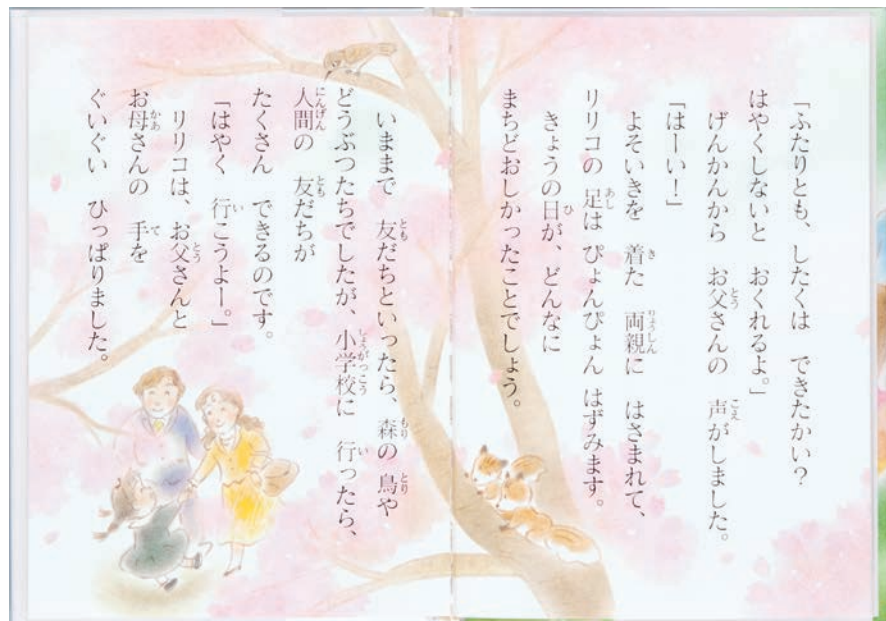 「ふたりとも、したくは　できたかい？
はやくしないと　おくれるよ。」
げんかんから　お父さんの　声がしました。
「はーい！」
よそいきを　着た　両親に　はさまれて、
リリコの　足は　ぴょんぴょん　はずみます。
きょうの日が、どんなに
まちどおしかったことでしょう。
いままで　友だちといったら、森の　鳥や
どうぶつたちでしたが、小学校に　行ったら、
人間の　友だちが
たくさん　できるのです。
「はやく　行こうよー。」
リリコは、お父さんと
お母さんの　手を
ぐいぐい　ひっぱりました。